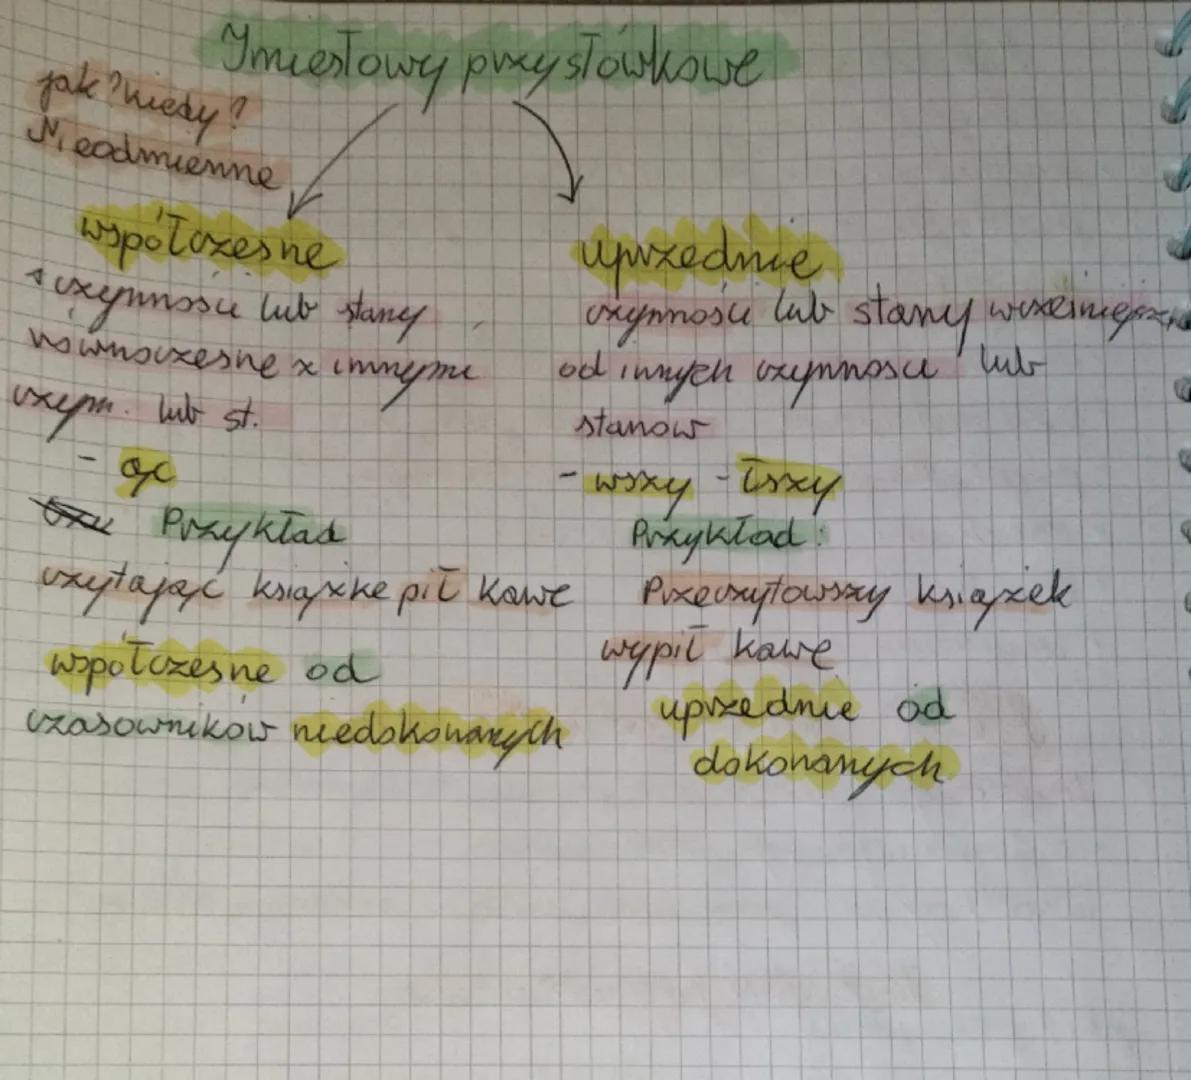 Imiesłowy przysłówkowe
jak? kiedy?
Nieodmienne
współczesne
czynności lub stany
równoczesne z innymi
czynn. lub st.
- ąc
Przykład
czytając książkę pił kawę
współczesne od
czasowników niedokonanych
uprzednie
czynności lub stany wcześniejsze
od innych czynności lub
stanów
- wszy - łszy
Przykład:
Przeczytowszy książek
wypił kawę
uprzednie od
dokonanych